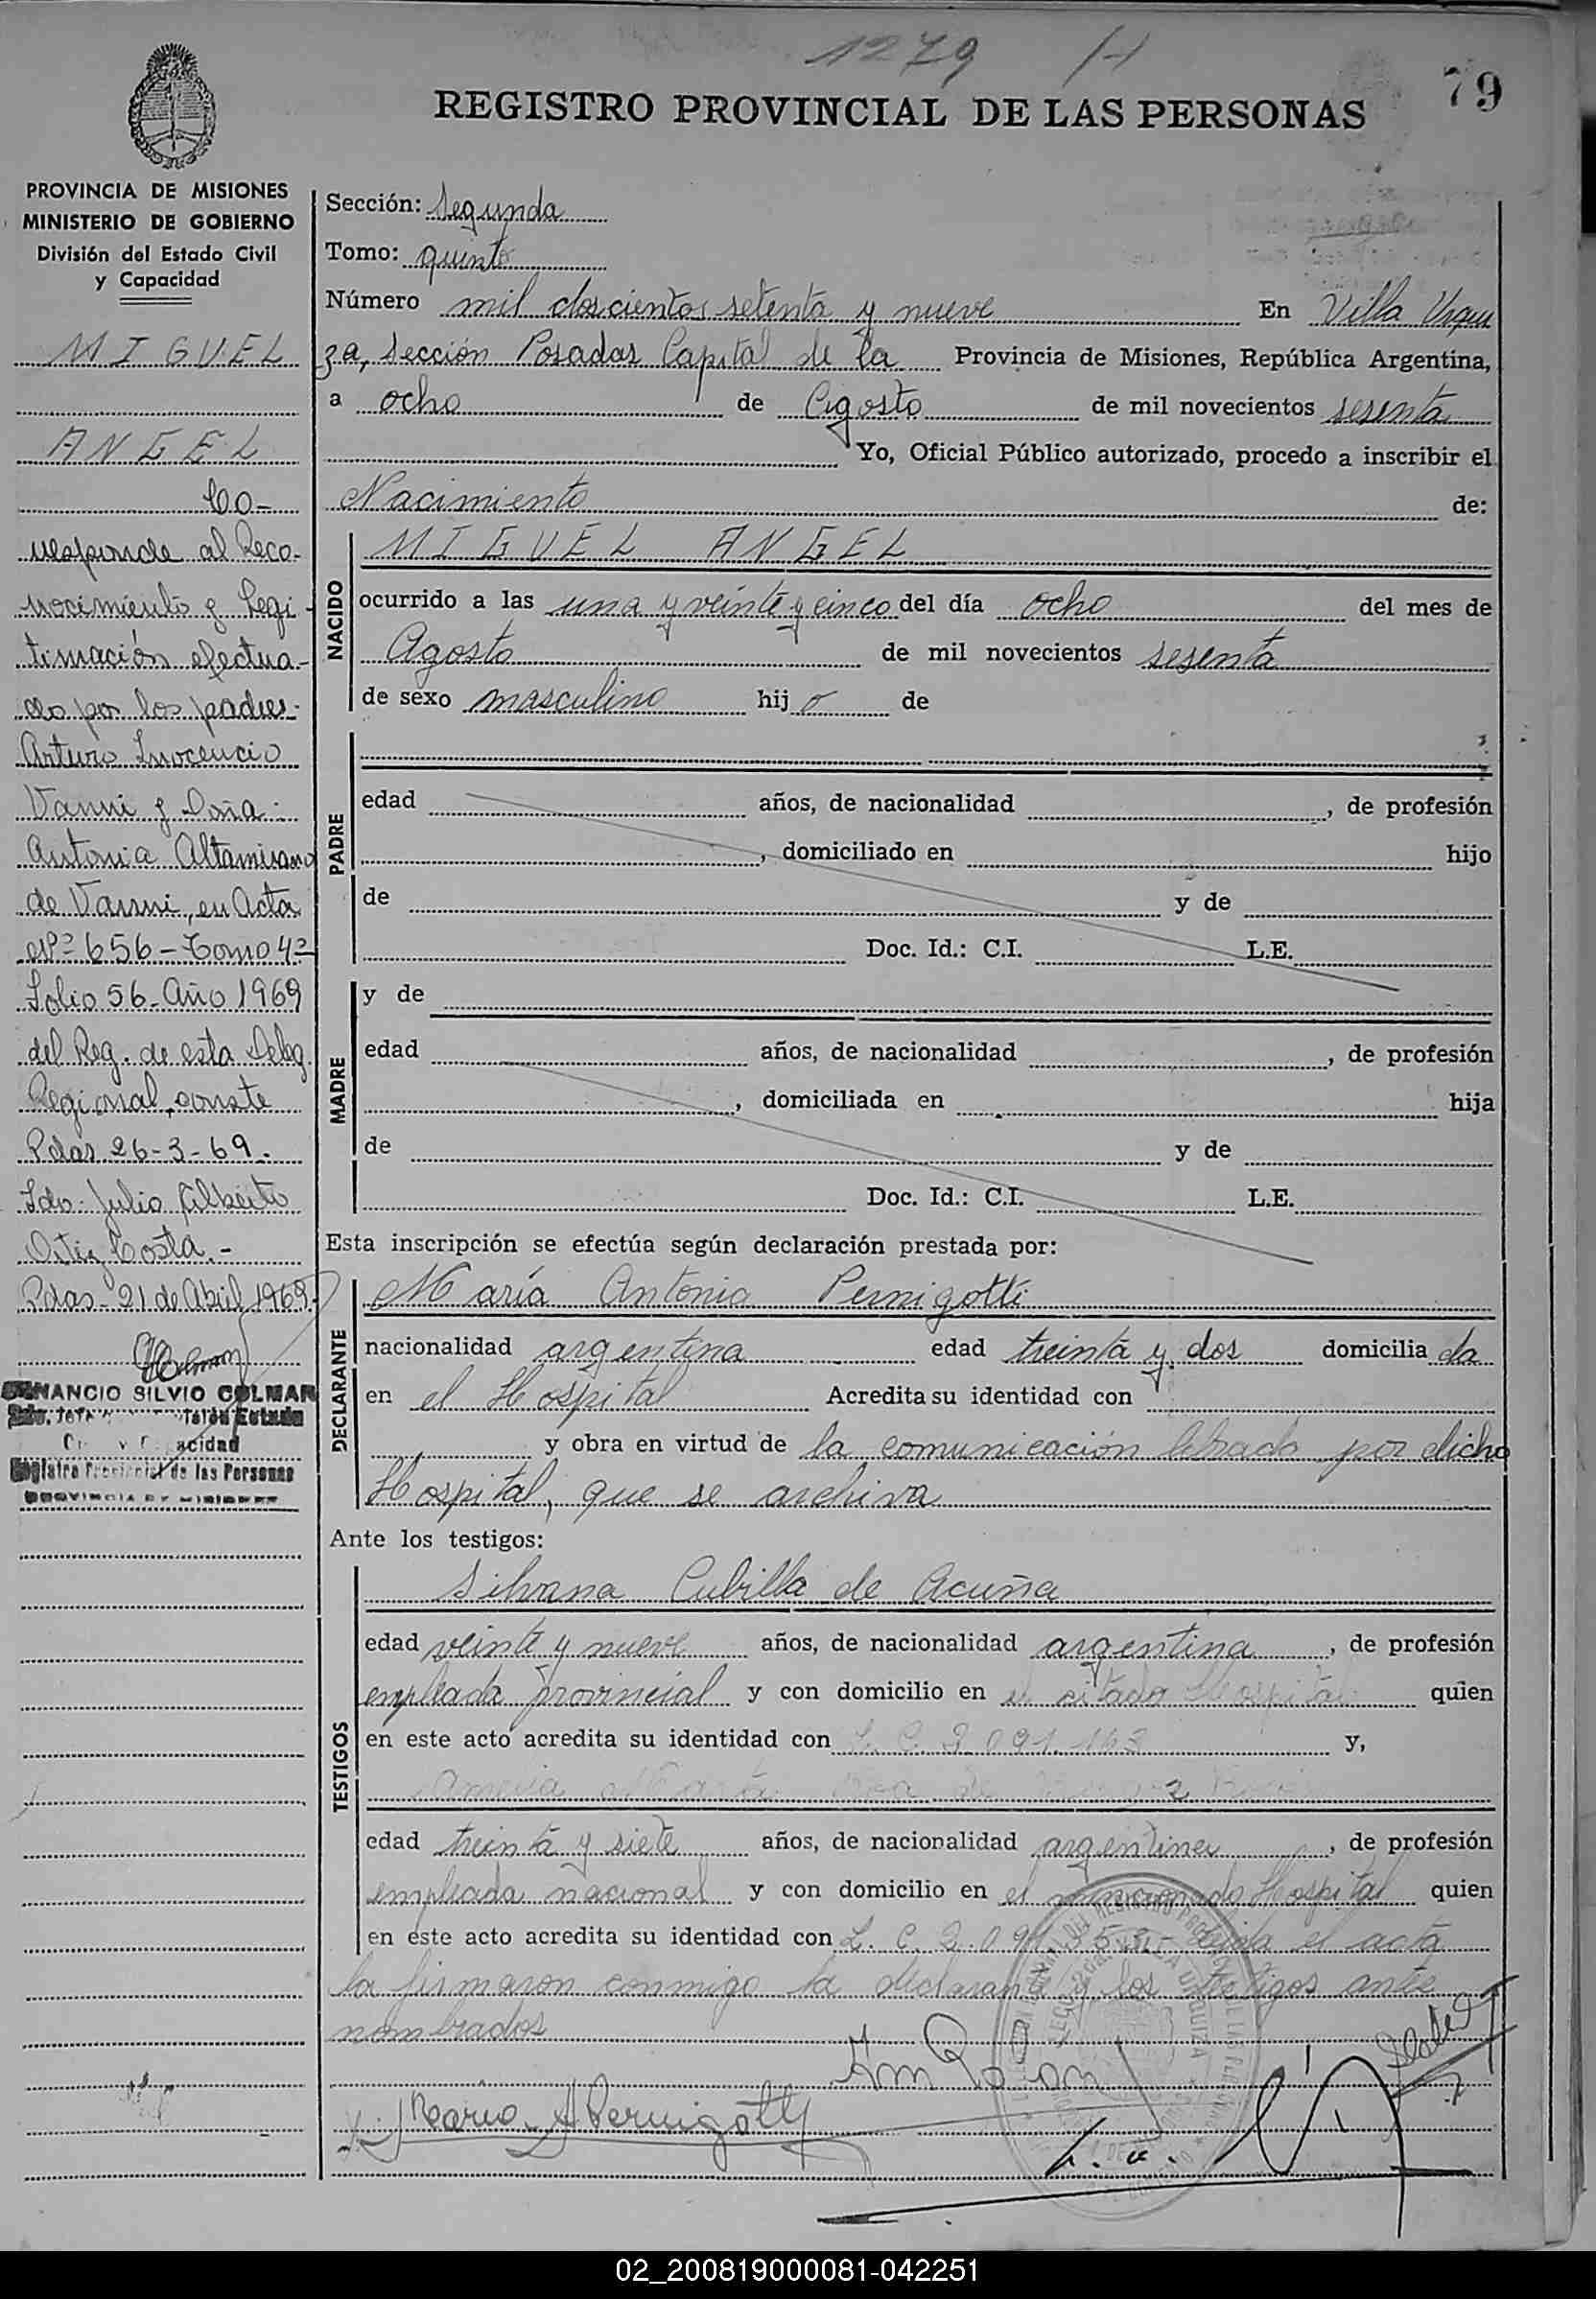 1279 H
79
REGISTRO PROVINCIAL DE LAS PERSONAS
PROVINCIA DE MISIONES
MINISTERIO DE GOBIERNO
División del Estado Civil
y Capacidad
MIGUEL
ANGEL
Co-
rresponde al Reco-
nocimiento y Legi-
timación efectua-
do por los padres:
Arturo Inocencio
Vanni y Doña:
Antonia Altamirano
de Vanni, en Acta
Nº 656 - Tomo 4º
Folio 56 - Año 1969
del Reg. de esta Deleg.
Regional, conste
Pdas 26-3-69.
Fdo: Julio Alberto
Ortiz Costa.-
Pdas- 21 de Abril 1969.
VENANCIO SILVIO COLMAN
Estado
Capacidad
Registro Provincial de las Personas
PROVINCIA DE MISIONES
Sección: Segunda
Tomo: quinto
Número mil doscientos setenta y nueve En Villa Urqui
za, Sección Posadas Capital de la Provincia de Misiones, República Argentina,
a ocho de Agosto de mil novecientos sesenta
Yo, Oficial Público autorizado, procedo a inscribir el
Nacimiento de:
NACIDO
MIGUEL ANGEL
ocurrido a las una y veinte y cinco del día ocho del mes de
Agosto de mil novecientos sesenta
de sexo masculino hijo de
PADRE
edad años, de nacionalidad , de profesión
, domiciliado en hijo
de y de
Doc. Id.: C.I. L.E.
MADRE
y de
edad años, de nacionalidad , de profesión
, domiciliada en hija
de y de
Doc. Id.: C.I. L.E.
Esta inscripción se efectúa según declaración prestada por:
DECLARANTE
María Antonia Pernigotti
nacionalidad argentina edad treinta y dos domicilia da
en el Hospital Acredita su identidad con
y obra en virtud de la comunicación librada por dicho
Hospital, que se archiva
Ante los testigos:
TESTIGOS
Silvana Cubilla de Acuña
edad veinte y nueve años, de nacionalidad argentina , de profesión
empleada provincial y con domicilio en el citado Hospital quien
en este acto acredita su identidad con L. C. 2.091.163 y,
edad treinta y siete años, de nacionalidad argentina , de profesión
empleada nacional y con domicilio en el mencionado Hospital quien
en este acto acredita su identidad con L. C. 2.091.353- Leída el acta
la firmaron conmigo la declarante y los testigos ante
nombrados
Maria A Pernigotti
02_200819000081-042251